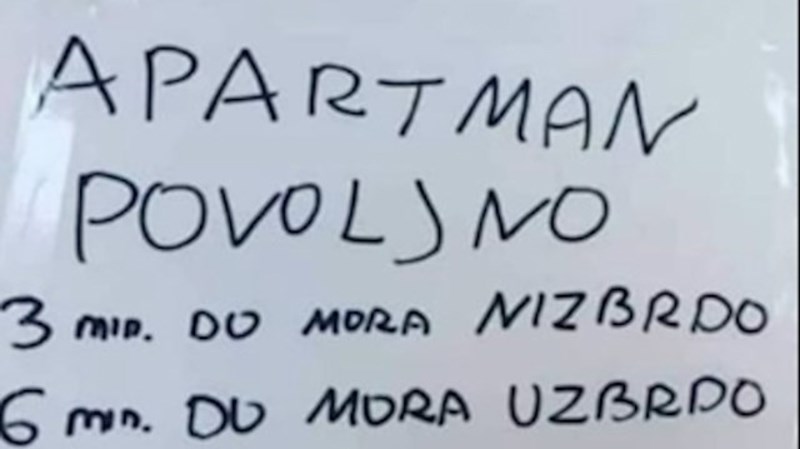 APARTMAN
POVOLJNO
3 min. DO MORA NIZBRDO
6 min. DO MORA UZBRDO